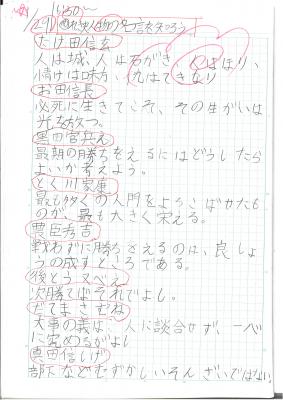 1/29 ⑳れきし人物の名言を知ろう
たけ田信玄
人は城、人は石がき、人はほり、
情けは味方、仇はてきなり
お田信長
必死に生きてこそ、その生がいは
光を放つ。
黒田官兵え
最期の勝ちをえるにはどうしたら
よいか考えよう。
とく川家康
最も多くの人間をよろこばせたも
のが、最も大きく栄える。
豊臣秀吉
戦わずに勝ちをえるのは、良しょ
うの成すところである。
後とう又べえ
次勝てばそれでよし。
だてまさむね
大事の義は、人に談合せず、一心
に究めるがよし
真田信しげ
部下ほどむずかしいそんざいではない